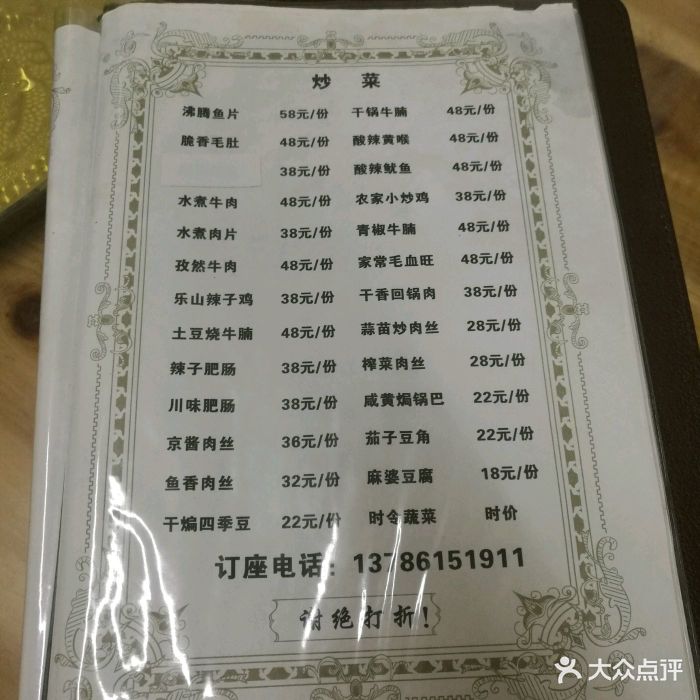 炒 菜
沸腾鱼片 58元/份 干锅牛腩 48元/份
脆香毛肚 48元/份 酸辣黄喉 48元/份
38元/份 酸辣鱿鱼 48元/份
水煮牛肉 48元/份 农家小炒鸡 38元/份
水煮肉片 38元/份 青椒牛腩 48元/份
孜然牛肉 48元/份 家常毛血旺 48元/份
乐山辣子鸡 38元/份 干香回锅肉 38元/份
土豆烧牛腩 48元/份 蒜苗炒肉丝 28元/份
辣子肥肠 38元/份 榨菜肉丝 28元/份
川味肥肠 38元/份 咸黄焗锅巴 22元/份
京酱肉丝 36元/份 茄子豆角 22元/份
鱼香肉丝 32元/份 麻婆豆腐 18元/份
干煸四季豆 22元/份 时令蔬菜 时价
订座电话：13786151911
谢绝打折！
大众点评